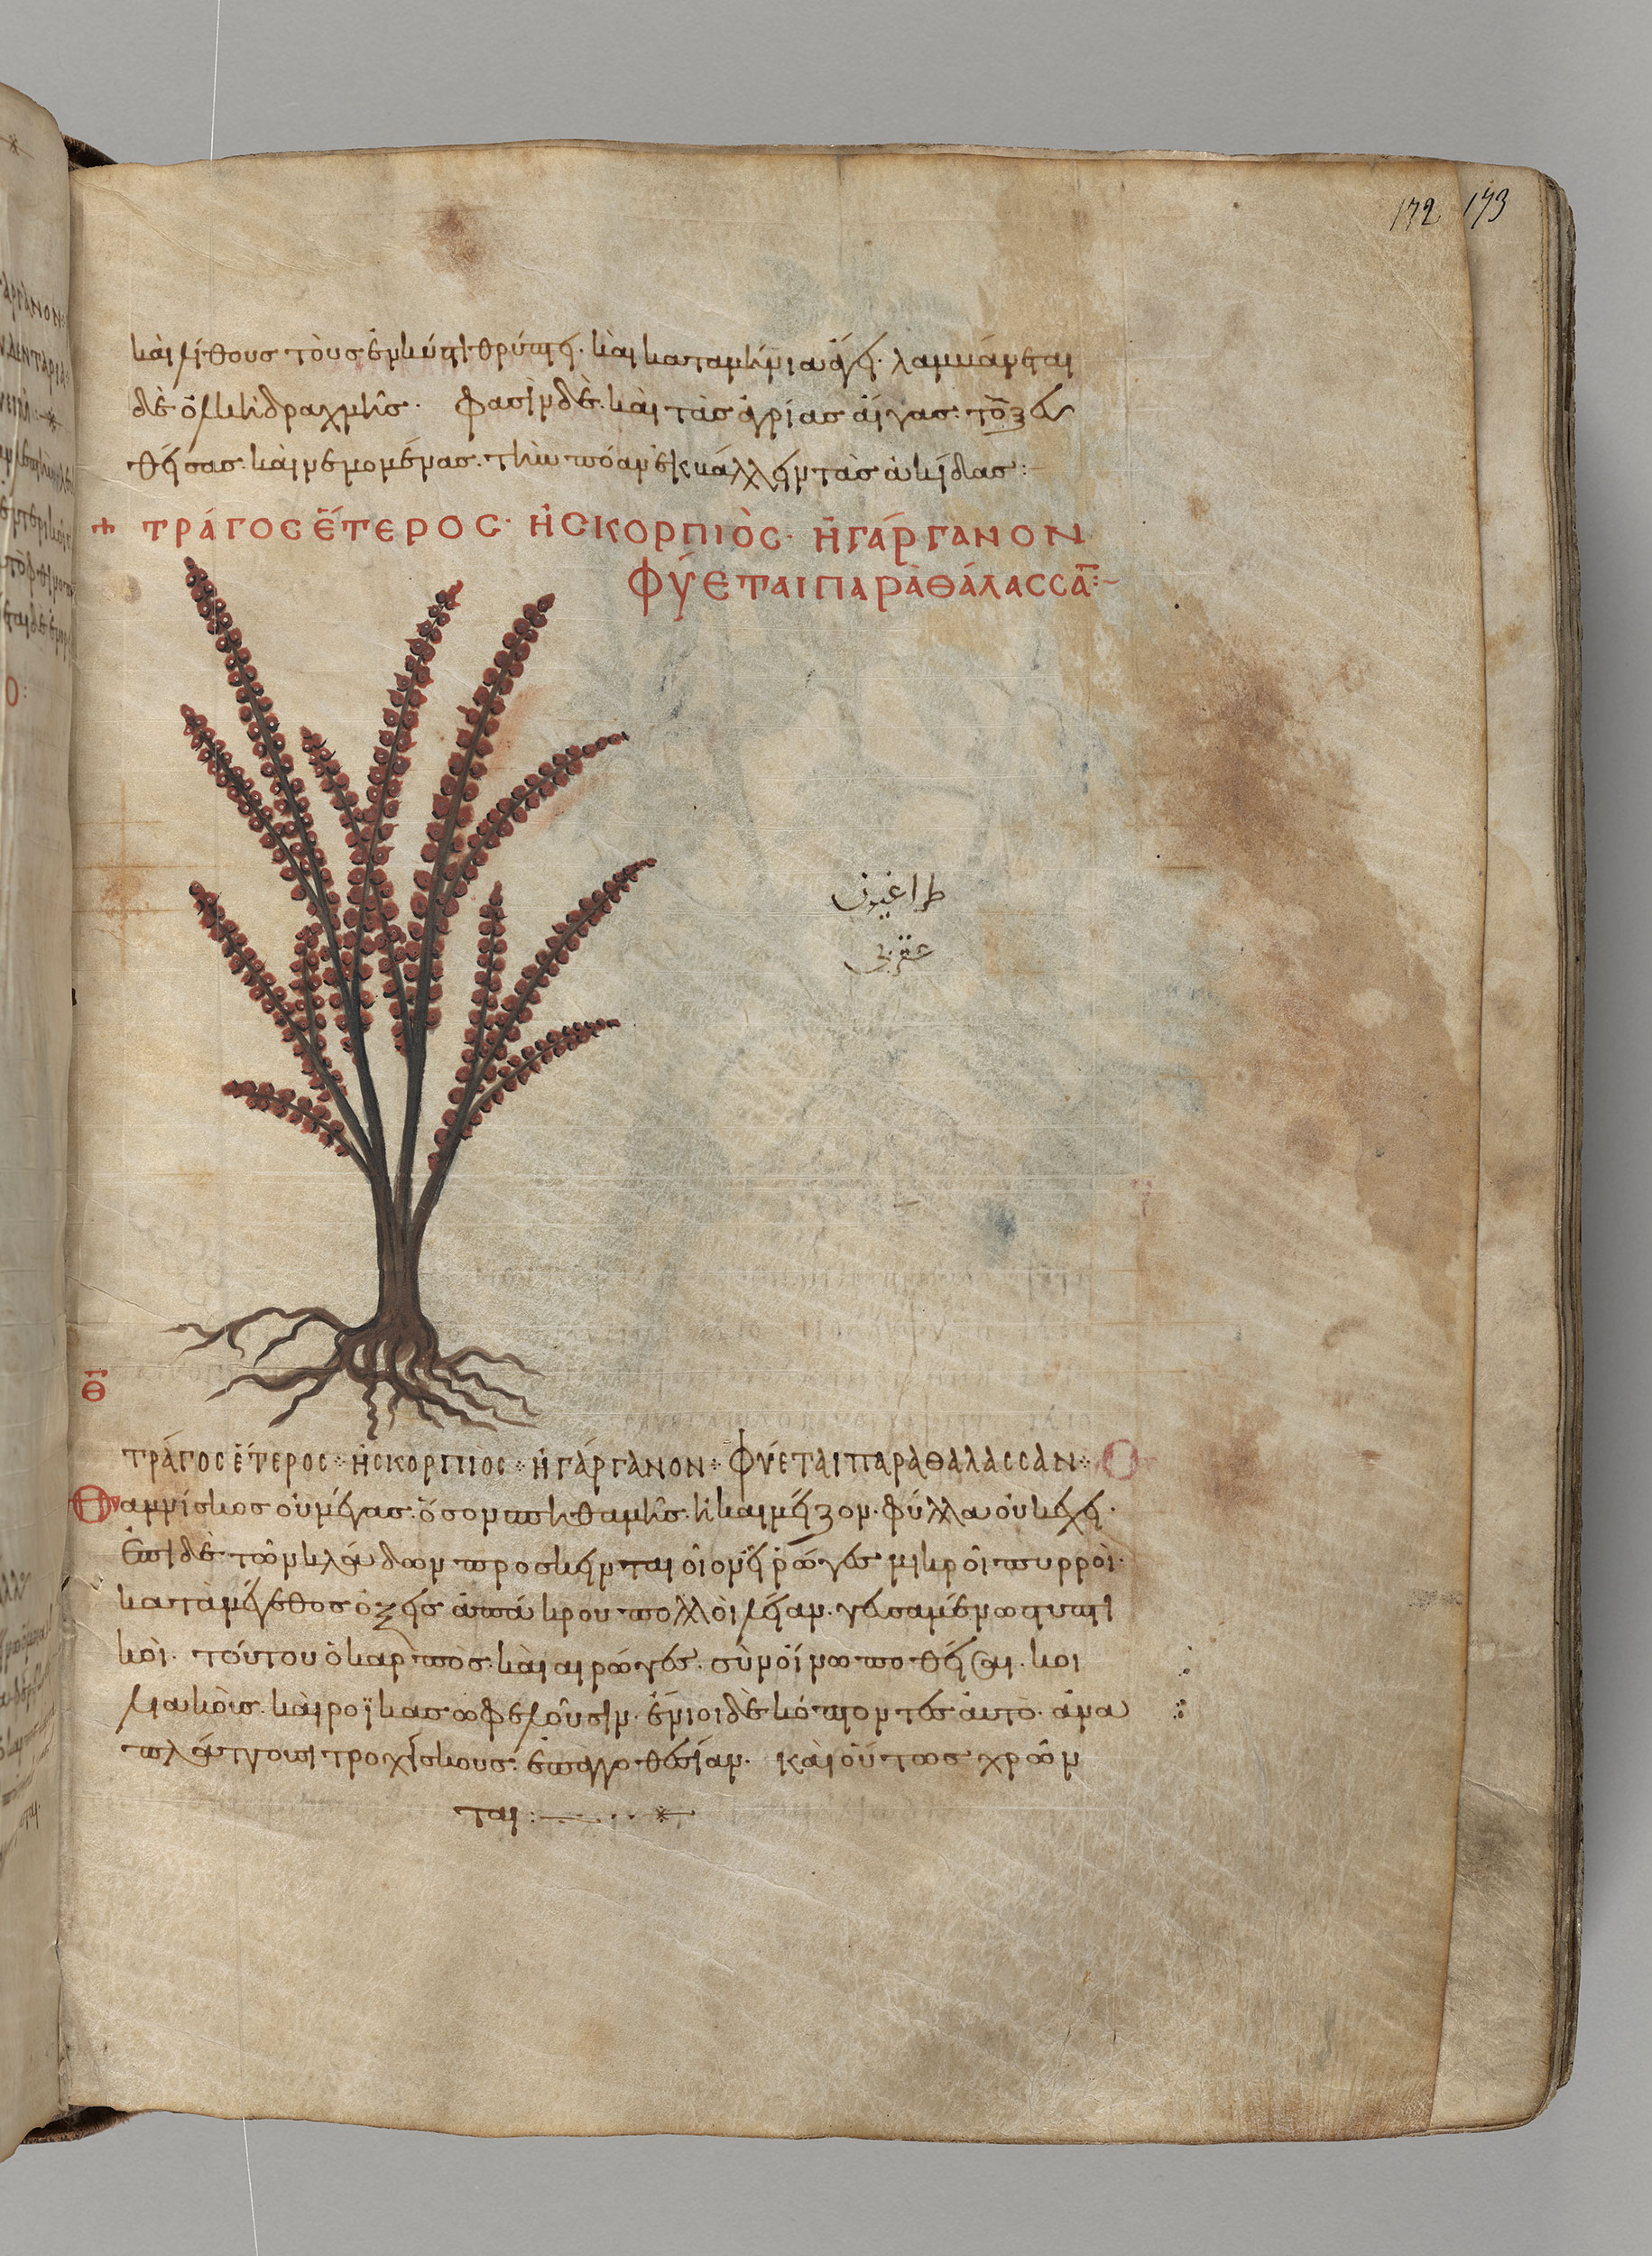 172 173
καὶ λίθους τοὺς ἐν κύστι θρύπτει· καὶ καταμήνια ἄγει· λαμβάνεται
δὲ ὁλκὴ δραχμῆς· Φασὶν δὲ καὶ τὰς ἀγρίας αἶγας· τοξευ
θείσας· καὶ νεμομένας· τὴν πόαν ἐκβάλλειν τὰς ἀκίδας:
ΤΡΆΓΟC ἝΤΕΡΟC· Ἠ CΚΟΡΠΙῸC· Ἠ ΓΆΡΓΑΝΟΝ
ΦΎΕΤΑΙ ΠΑΡᾺ ΘΆΛΑCCΑ̅:~
طراغيون
عقربى
θ
ΤΡΆΓΟC ἝΤΕΡΟC· Ἠ CΚΟΡΠΙΟC· Ἠ ΓΆΡΓΑΝΟΝ· ΦΎΕΤΑΙ ΠΑΡΑ ΘΑΛΑCCΑΝ·
Θαμνίσκος οὐ μέγας· ὅσον σπιθαμῆς· ἢ καὶ μείζον· φύλλα οὐκ ἔχει·
Ἐπὶ δὲ τῶν κλάδων προσκεινται οἱονεὶ ῥῶγες μικροὶ πυρροὶ·
κατὰ μέγεθος ὀξεῖς ἀπ' ἄκρου πολλοὶ λείαν· γευσαμένω στυπτι
κοὶ· τούτου ὁ καρπὸς· καὶ αι ρῶγες· σὺν οἴνω ποθεῖσαι· κοι
λιακοὺς· καὶ ροϊκας ωφελοῦσιν· ἔνιοι δὲ κόπτοντες ἀυτὸ· ἀνα
πλάττουσι τροχίσκους· ἐπ' ἀγγοθεσίαν· καὶ οὕτως χρῶν
ται: